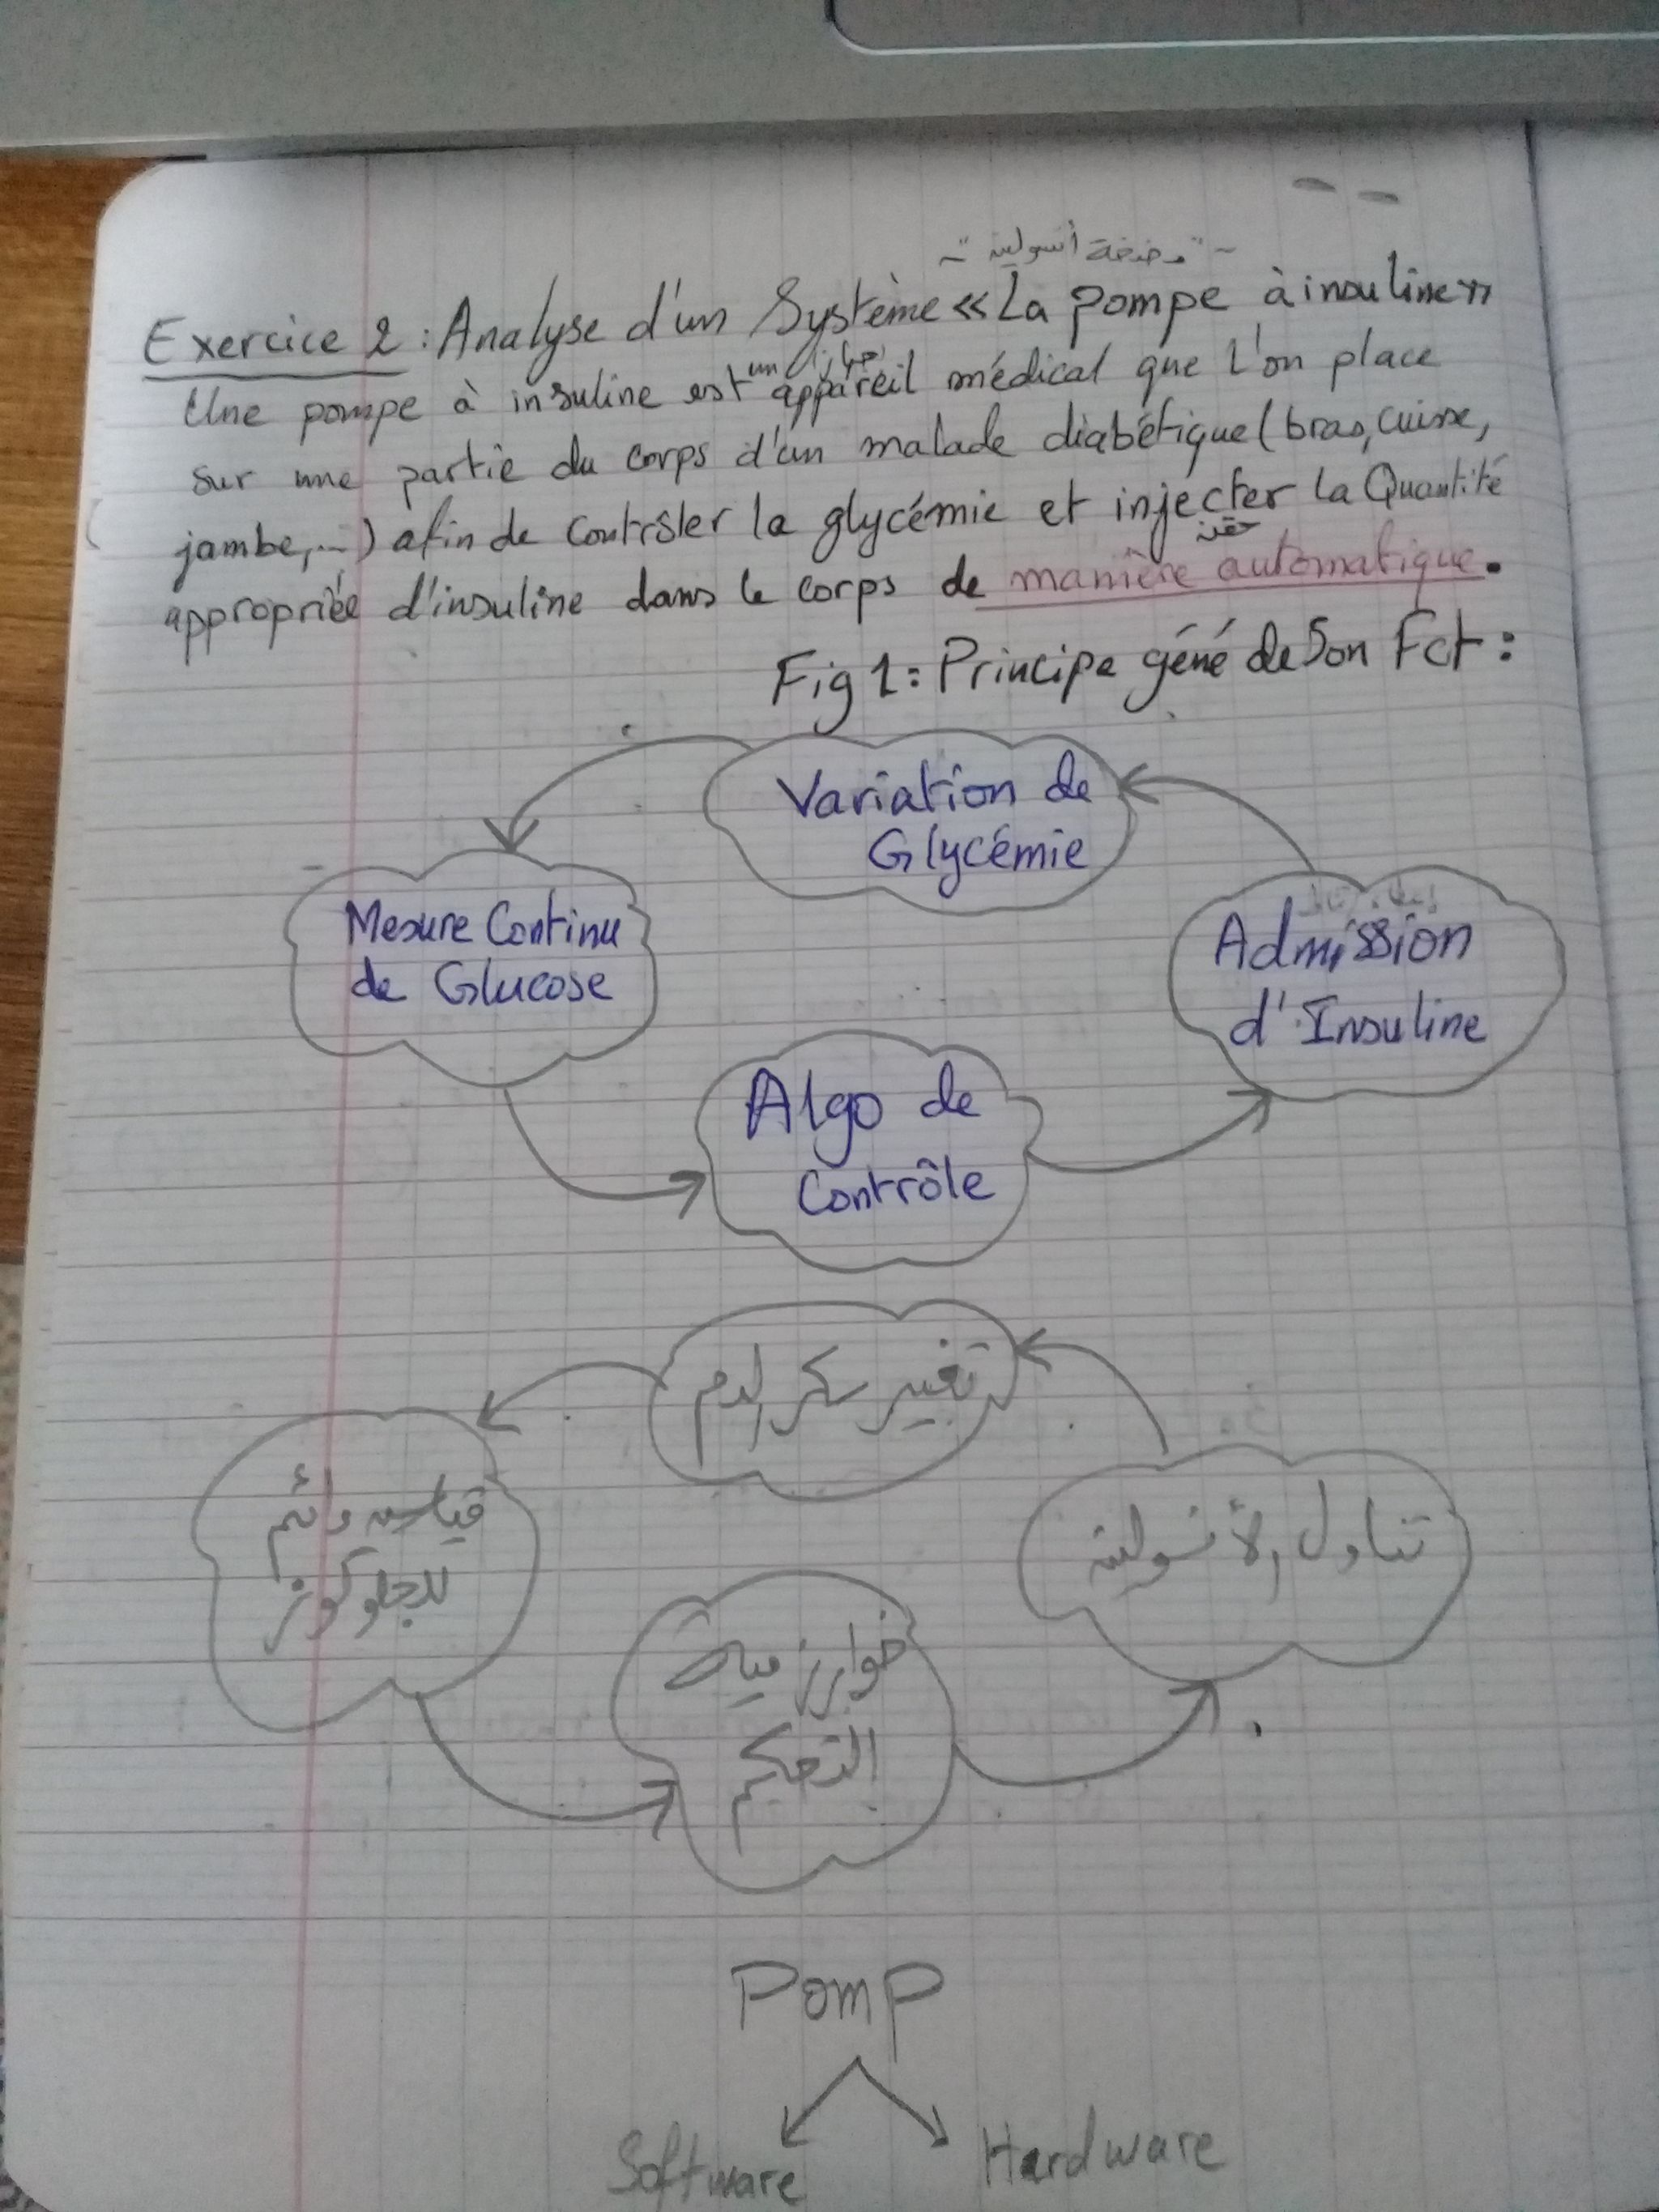 ~ " مضخة أنسولين " ~
Exercice 2 : Analyse d'un Système « La pompe à insuline »
جهاز
Une pompe à insuline est un appareil médical que l'on place
sur une partie du corps d'un malade diabétique (bras, cuisse,
jambe, ...) afin de contrôler la glycémie et injecter la Quantité
حقن
appropriée d'insuline dans le corps de manière automatique.
Fig 1 : Principe géné de Son Fct :
Variation de
Glycémie
Mesure Continu
de Glucose
Admission
d'Insuline
Algo de
Contrôle
تغيير سكر الدم
قياس دائم
للجلوكوز
تناول الأنسولين
خوارزمية
التحكم
Pomp
Software
Hardware